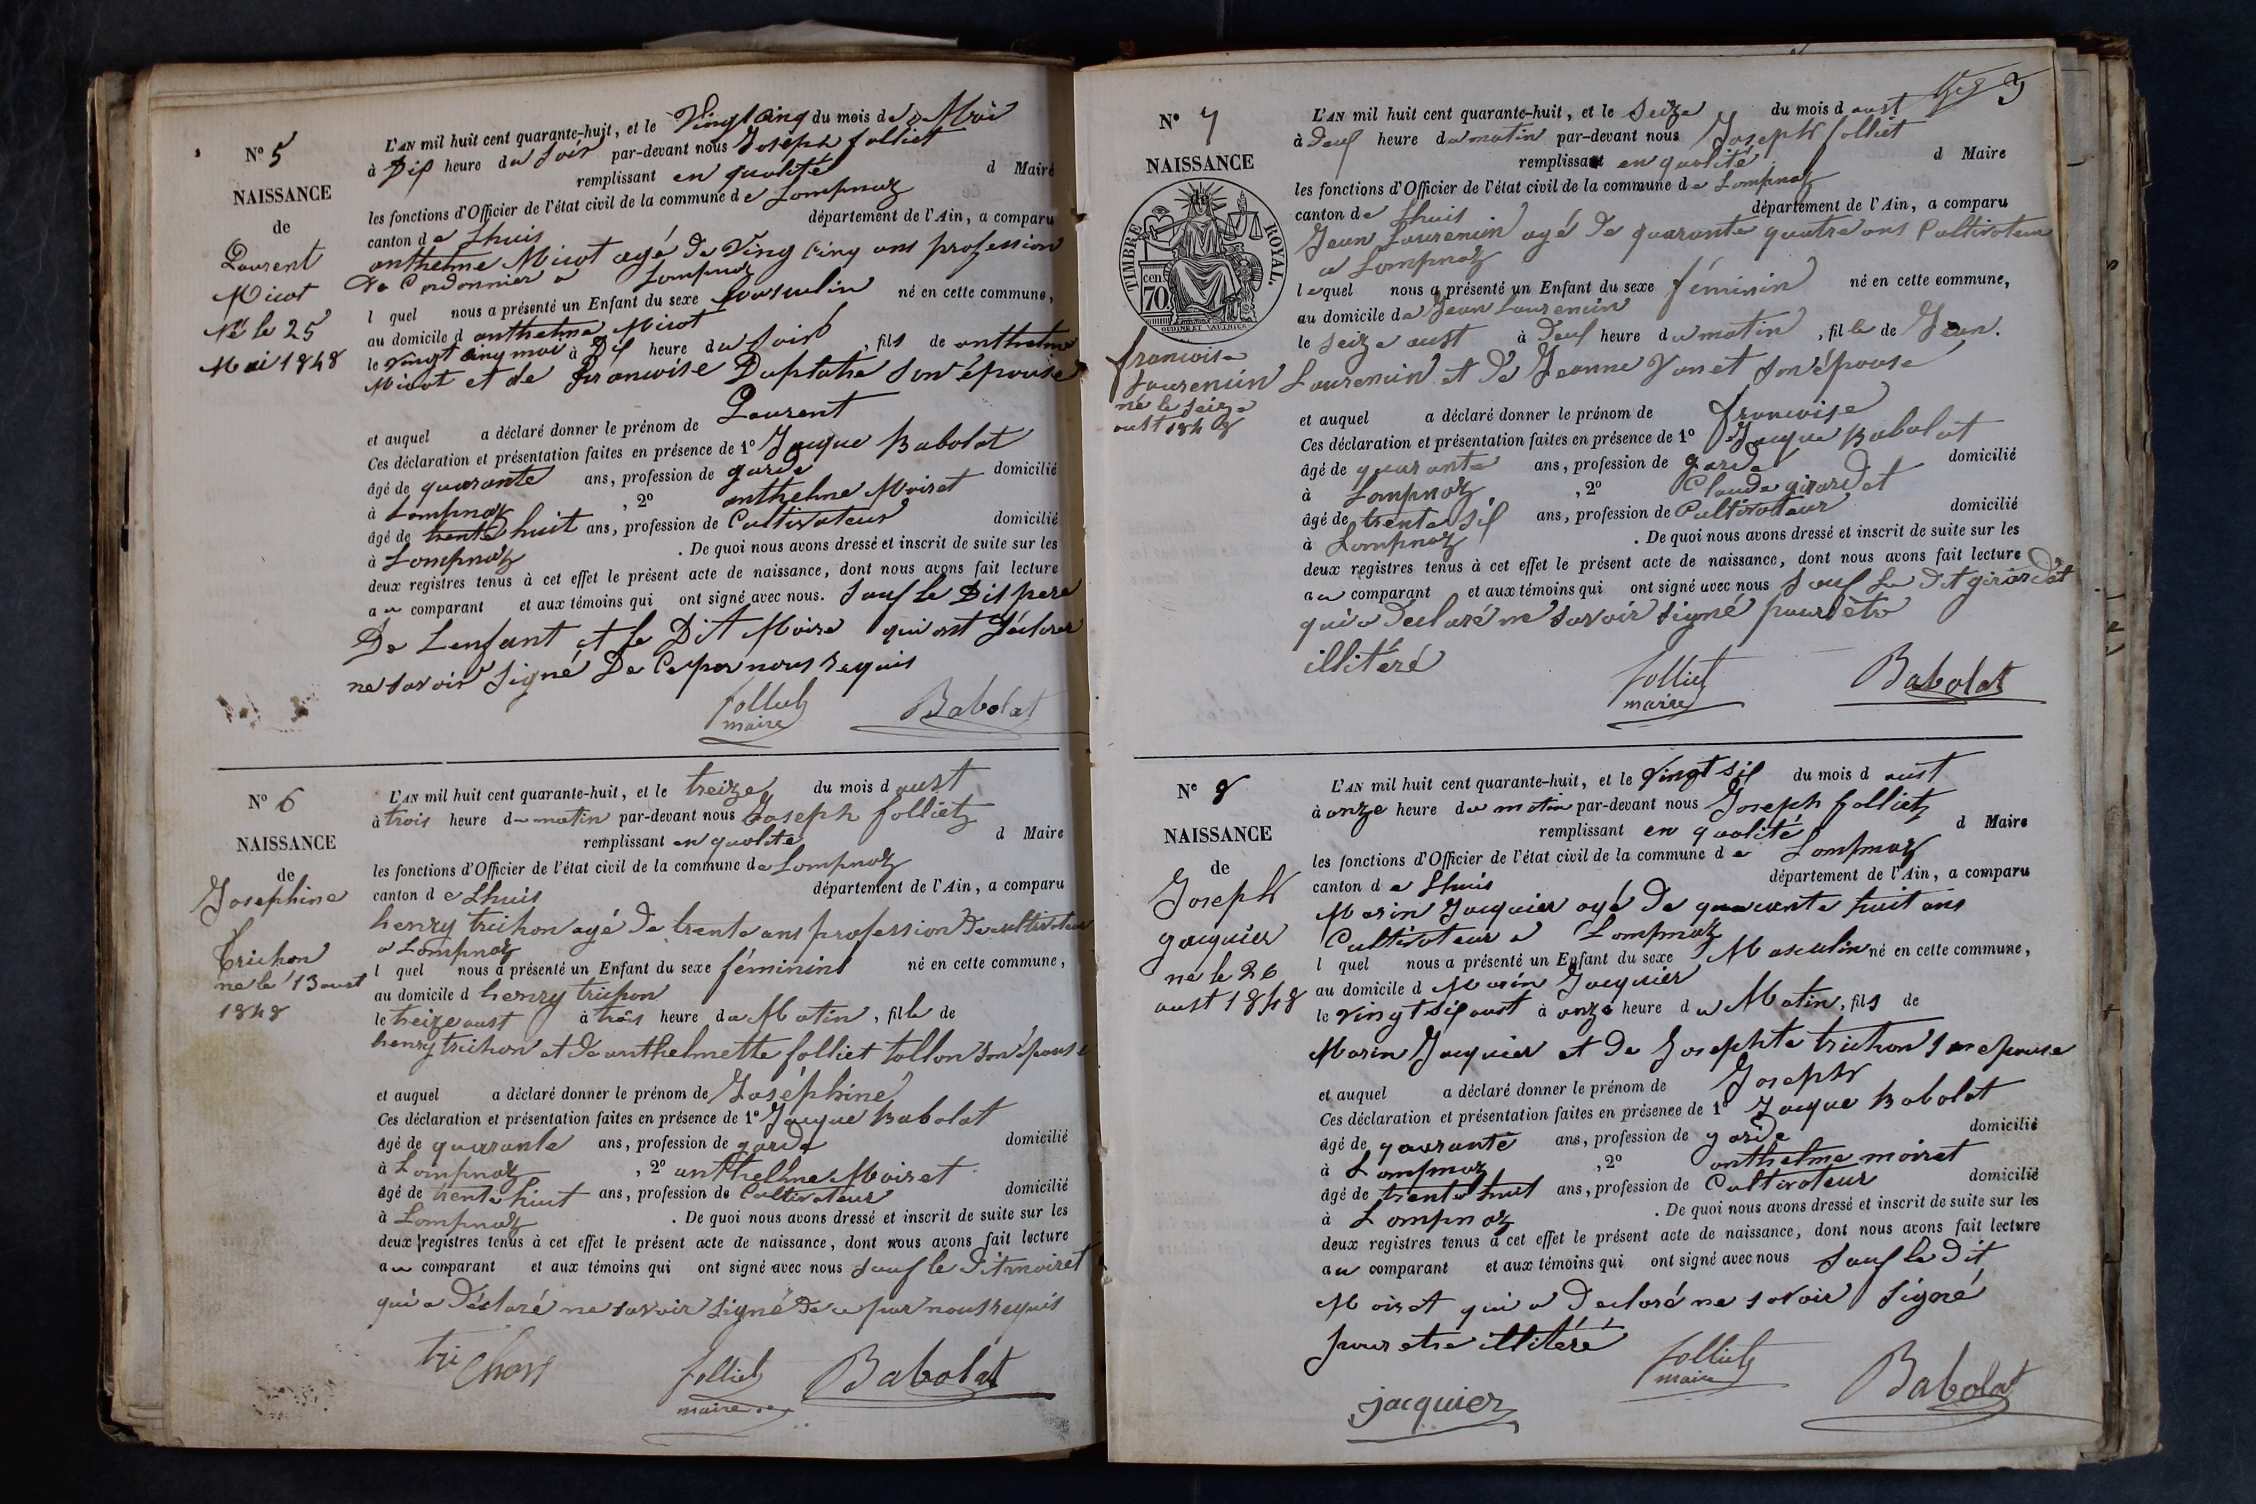 N° 5
NAISSANCE
de
Laurent
Micot
Né le 25
Mai 1848
L'AN mil huit cent quarante-huit, et le Vingt cinq du mois de Mai
à Dix heure du soir par-devant nous Joseph folliet
remplissant en qualité d Maire
les fonctions d'Officier de l'état civil de la commune de Lompnaz
canton de Lhuis département de l'Ain, a comparu
anthelme Micot agé de Ving cinq ans profession
de Cordonnier a Lompnaz
l quel nous a présenté un Enfant du sexe masculin né en cette commune,
au domicile d anthelme Micot
le vingt cinq mai à Dix heure du soir, fils de anthelme
Micot et de francoise Duplatre son épouse
et auquel a déclaré donner le prénom de Laurent
Ces déclaration et présentation faites en présence de 1° Jacque Babolat
âgé de quarante ans, profession de garde domicilié
à Lompnaz, 2° anthelme Moiret
âgé de trente huit ans, profession de Cultivateur domicilié
à Lompnaz. De quoi nous avons dressé et inscrit de suite sur les
deux registres tenus à cet effet le présent acte de naissance, dont nous avons fait lecture
au comparant et aux témoins qui ont signé avec nous. sauf le Dit pere
De Lenfant et le Dit Moire qui ont déclarer
ne savoir signé De ce par nous requis
folliet
maire
Babolat
N° 6
NAISSANCE
de
Josephine
Trichon
ne le 13 aust
1848
L'AN mil huit cent quarante-huit, et le treize du mois d aust
à trois heure du matin par-devant nous Joseph folliet
remplissant en qualité d Maire
les fonctions d'Officier de l'état civil de la commune de Lompnaz
canton de Lhuis département de l'Ain, a comparu
henry trichon agé de trente ans profession de cultivateur
a Lompnaz
l quel nous a présenté un Enfant du sexe féminin né en cette commune,
au domicile d henry trichon
le treize aust à trois heure du Matin, fille de
henry trichon et de anthelmette folliet tollon son épouse
et auquel a déclaré donner le prénom de Joséphine
Ces déclaration et présentation faites en présence de 1° Jacque Babolat
âgé de quarante ans, profession de garde domicilié
à Lompnaz, 2° anthelme Moiret
âgé de trente huit ans, profession de Cultivateur domicilié
à Lompnaz. De quoi nous avons dressé et inscrit de suite sur les
deux registres tenus à cet effet le présent acte de naissance, dont nous avons fait lecture
au comparant et aux témoins qui ont signé avec nous sauf le dit moiret
qui a déclaré ne savoir signé de ce par nous requis
trichon
folliet
maire
Babolat
9
N° 7
NAISSANCE
de
TIMBRE ROYAL
70 cen
francoise
Laurencin
né le seize
aust 1848
L'AN mil huit cent quarante-huit, et le seize du mois d aust
à deux heure du matin par-devant nous Joseph folliet
remplissant en qualité d Maire
les fonctions d'Officier de l'état civil de la commune de Lompnaz
canton de Lhuis département de l'Ain, a comparu
Jean Laurencin agé de quarante quatre ans Cultivateur
a Lompnaz
lequel nous a présenté un Enfant du sexe féminin né en cette commune,
au domicile de Jean Laurencin
le seize aust à deux heure du matin, fille de Jean
Laurencin et de Jeanne Vanet son épouse
et auquel a déclaré donner le prénom de francoise
Ces déclaration et présentation faites en présence de 1° Jacque Babolat
âgé de quarante ans, profession de garde domicilié
à Lompnaz, 2° Claude girardet
âgé de trente six ans, profession de Cultivateur domicilié
à Lompnaz. De quoi nous avons dressé et inscrit de suite sur les
deux registres tenus à cet effet le présent acte de naissance, dont nous avons fait lecture
au comparant et aux témoins qui ont signé avec nous sauf le dit girardet
qui a déclaré ne savoir signé pour être
illitéré
folliet
maire
Babolat
N° 8
NAISSANCE
de
Joseph
jacquier
ne le 26
aust 1848
L'AN mil huit cent quarante-huit, et le vingt six du mois d aust
à onze heure du matin par-devant nous Joseph folliet
remplissant en qualité d Maire
les fonctions d'Officier de l'état civil de la commune de Lompnaz
canton de Lhuis département de l'Ain, a comparu
Marin Jacquier agé de quarante huit ans
Cultivateur a Lompnaz
l quel nous a présenté un Enfant du sexe Masculin né en cette commune,
au domicile d Marin Jacquier
le vingt six aust à onze heure du Matin, fils de
Marin Jacquier et de Josephte trichon son epouse
et auquel a déclaré donner le prénom de Joseph
Ces déclaration et présentation faites en présence de 1° Jacque Babolat
âgé de quarante ans, profession de garde domicilié
à Lompnaz, 2° anthelme moiret
âgé de trente huit ans, profession de Cultivateur domicilié
à Lompnaz. De quoi nous avons dressé et inscrit de suite sur les
deux registres tenus à cet effet le présent acte de naissance, dont nous avons fait lecture
au comparant et aux témoins qui ont signé avec nous sauf le dit
Moiret qui a déclaré ne savoir signé
pour etre illitéré
folliet
maire
jacquier
Babolat